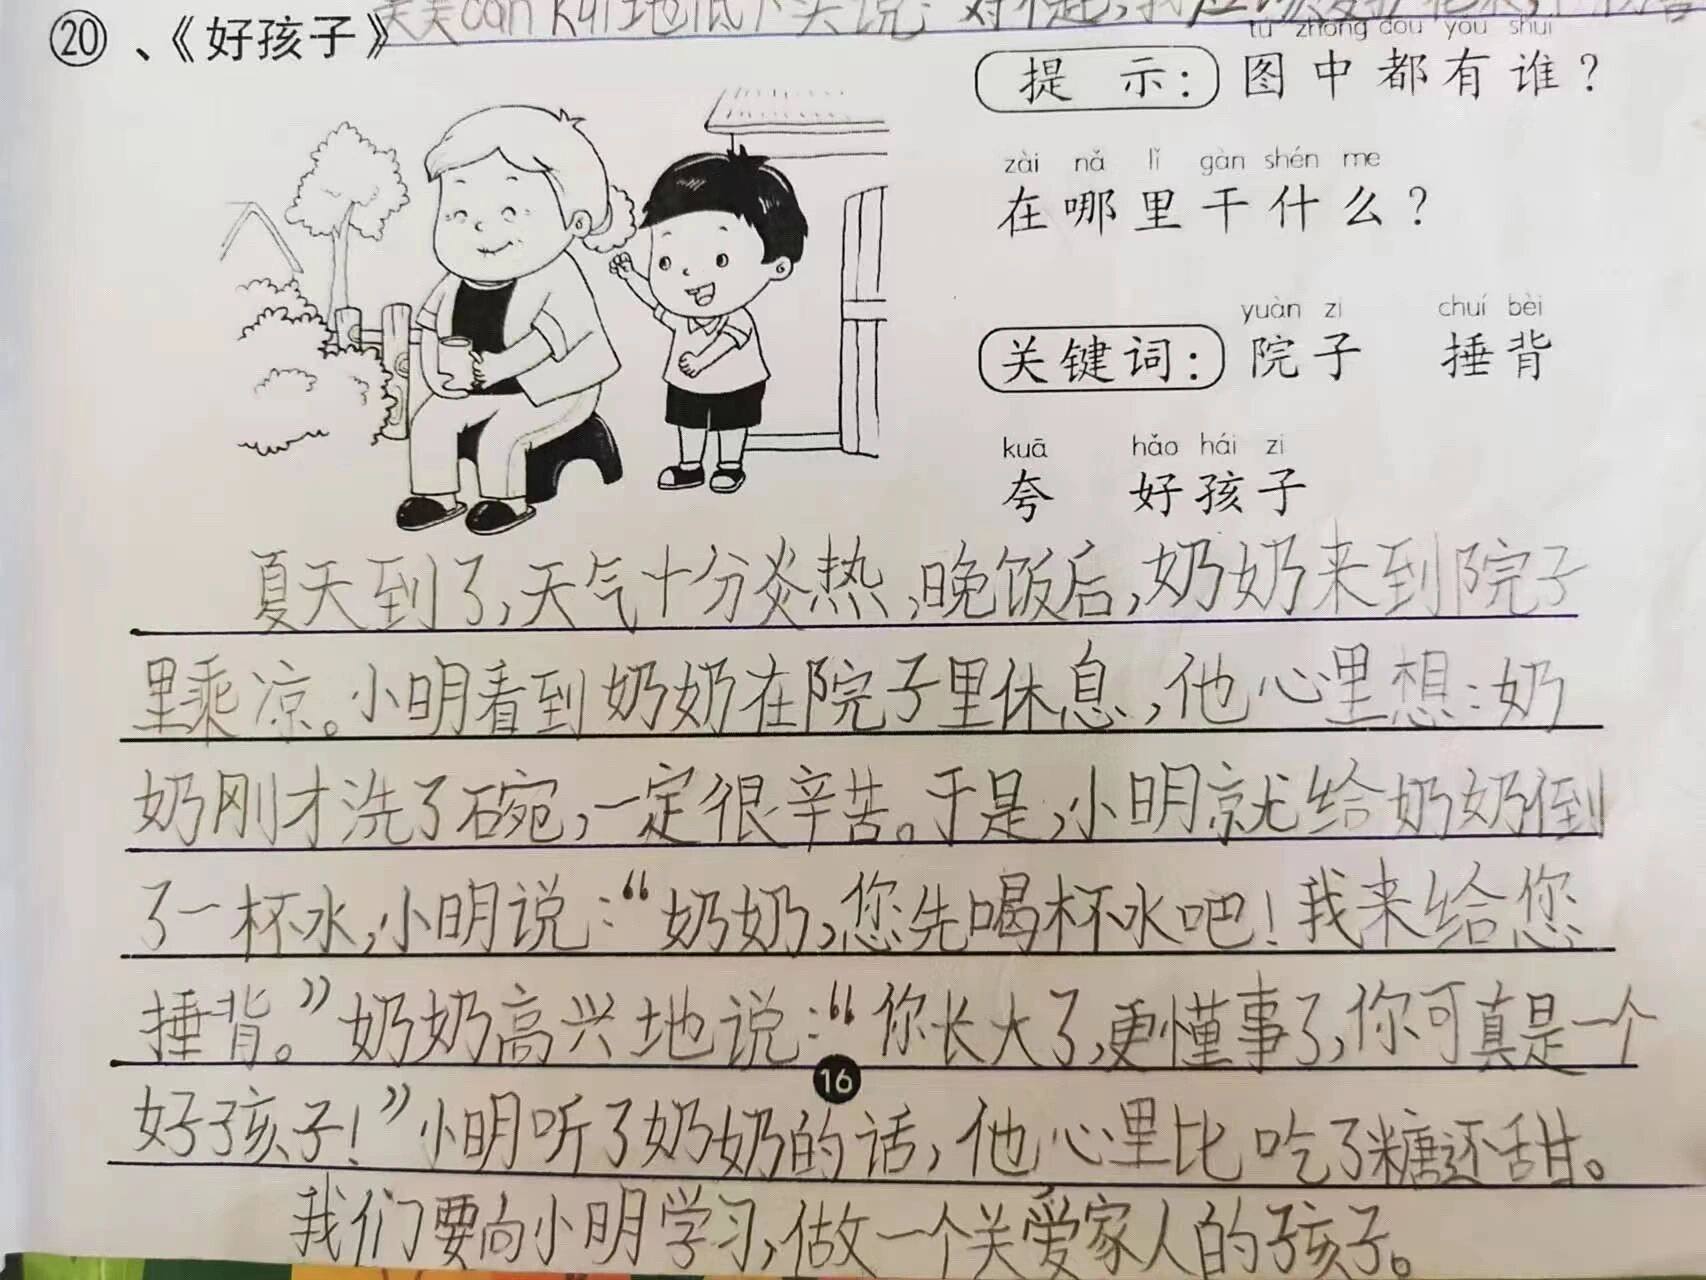 美美can kuì地低下头说：对不起，我应该爱护花
⑳、《好孩子》
tú zhōng dōu yǒu shuí
提 示：图中都有谁？
zài nǎ lǐ gàn shén me
在哪里干什么？
yuàn zi chuí bèi
关键词：院子 捶背
kuā hǎo hái zi
夸 好孩子
夏天到了，天气十分炎热，晚饭后，奶奶来到院子
里乘凉。小明看到奶奶在院子里休息，他心里想：奶
奶刚才洗了碗，一定很辛苦。于是，小明就给奶奶倒
了一杯水，小明说：“奶奶，您先喝杯水吧！我来给您
捶背。”奶奶高兴地说：“你长大了，更懂事了，你可真是一个
16
好孩子！”小明听了奶奶的话，他心里比吃了糖还甜。
我们要向小明学习，做一个关爱家人的孩子。